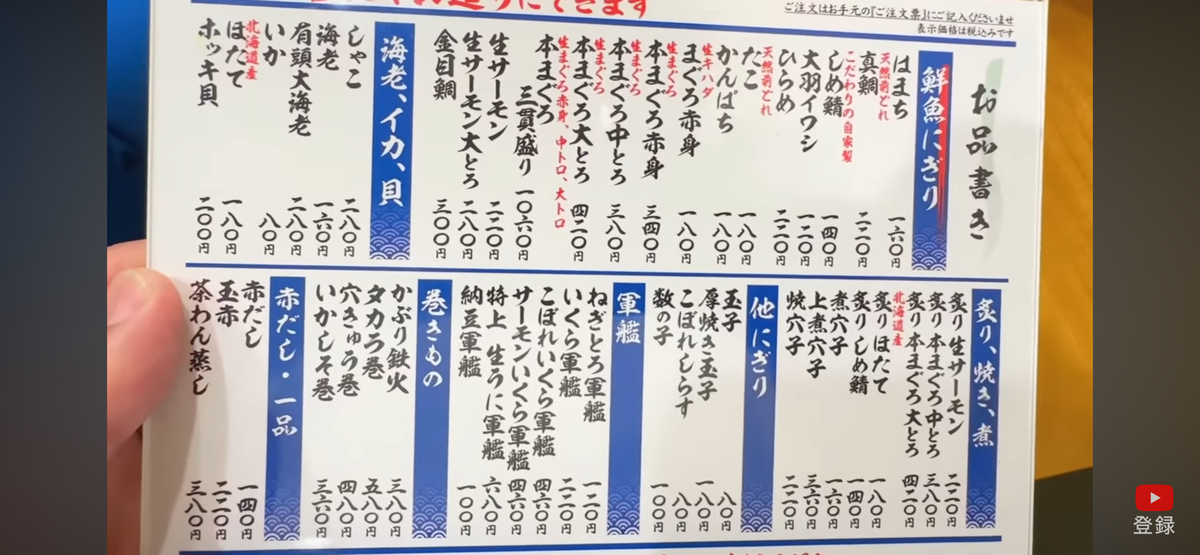 ご注文はお手元の『ご注文票』にご記入くださいませ
表示価格は税込みです
お品書き
鮮魚にぎり
はまち 一六〇円
天然前どれ
真鯛 二二〇円
こだわりの自家製
しめ鯖 一四〇円
大羽イワシ 一二〇円
ひらめ 二二〇円
天然前どれ
たこ 一八〇円
かんぱち 一八〇円
生キハダ
まぐろ赤身 一八〇円
生まぐろ
本まぐろ赤身 三四〇円
生まぐろ
本まぐろ中とろ 三八〇円
生まぐろ
本まぐろ大とろ 四二〇円
生まぐろ赤身、中トロ、大トロ
本まぐろ
三貫盛り 一〇六〇円
生サーモン 二二〇円
生サーモン大とろ 二八〇円
金目鯛 三〇〇円
海老、イカ、貝
しゃこ 二八〇円
海老 一六〇円
有頭大海老 二八〇円
いか 八〇円
北海道産
ほたて 一八〇円
ホッキ貝 二〇〇円
炙り、焼き、煮
炙り生サーモン 二二〇円
炙り本まぐろ中とろ 三八〇円
炙り本まぐろ大とろ 四二〇円
北海道産
炙りほたて 一八〇円
炙りしめ鯖 一四〇円
煮穴子 一六〇円
上煮穴子 三六〇円
焼穴子 二二〇円
他にぎり
玉子 八〇円
厚焼き玉子 一八〇円
こぼれしらす 八〇円
数の子 一〇〇円
軍艦
ねぎとろ軍艦 一二〇円
いくら軍艦 二二〇円
こぼれいくら軍艦 四六〇円
サーモンいくら軍艦 四六〇円
特上 生うに軍艦 六八〇円
納豆軍艦 一〇〇円
巻きもの
かぶり鉄火 三八〇円
タカろ巻 五八〇円
穴きゅう巻 四八〇円
いかしそ巻 三六〇円
赤だし・一品
赤だし 一四〇円
玉赤 二二〇円
茶わん蒸し 三八〇円
登録